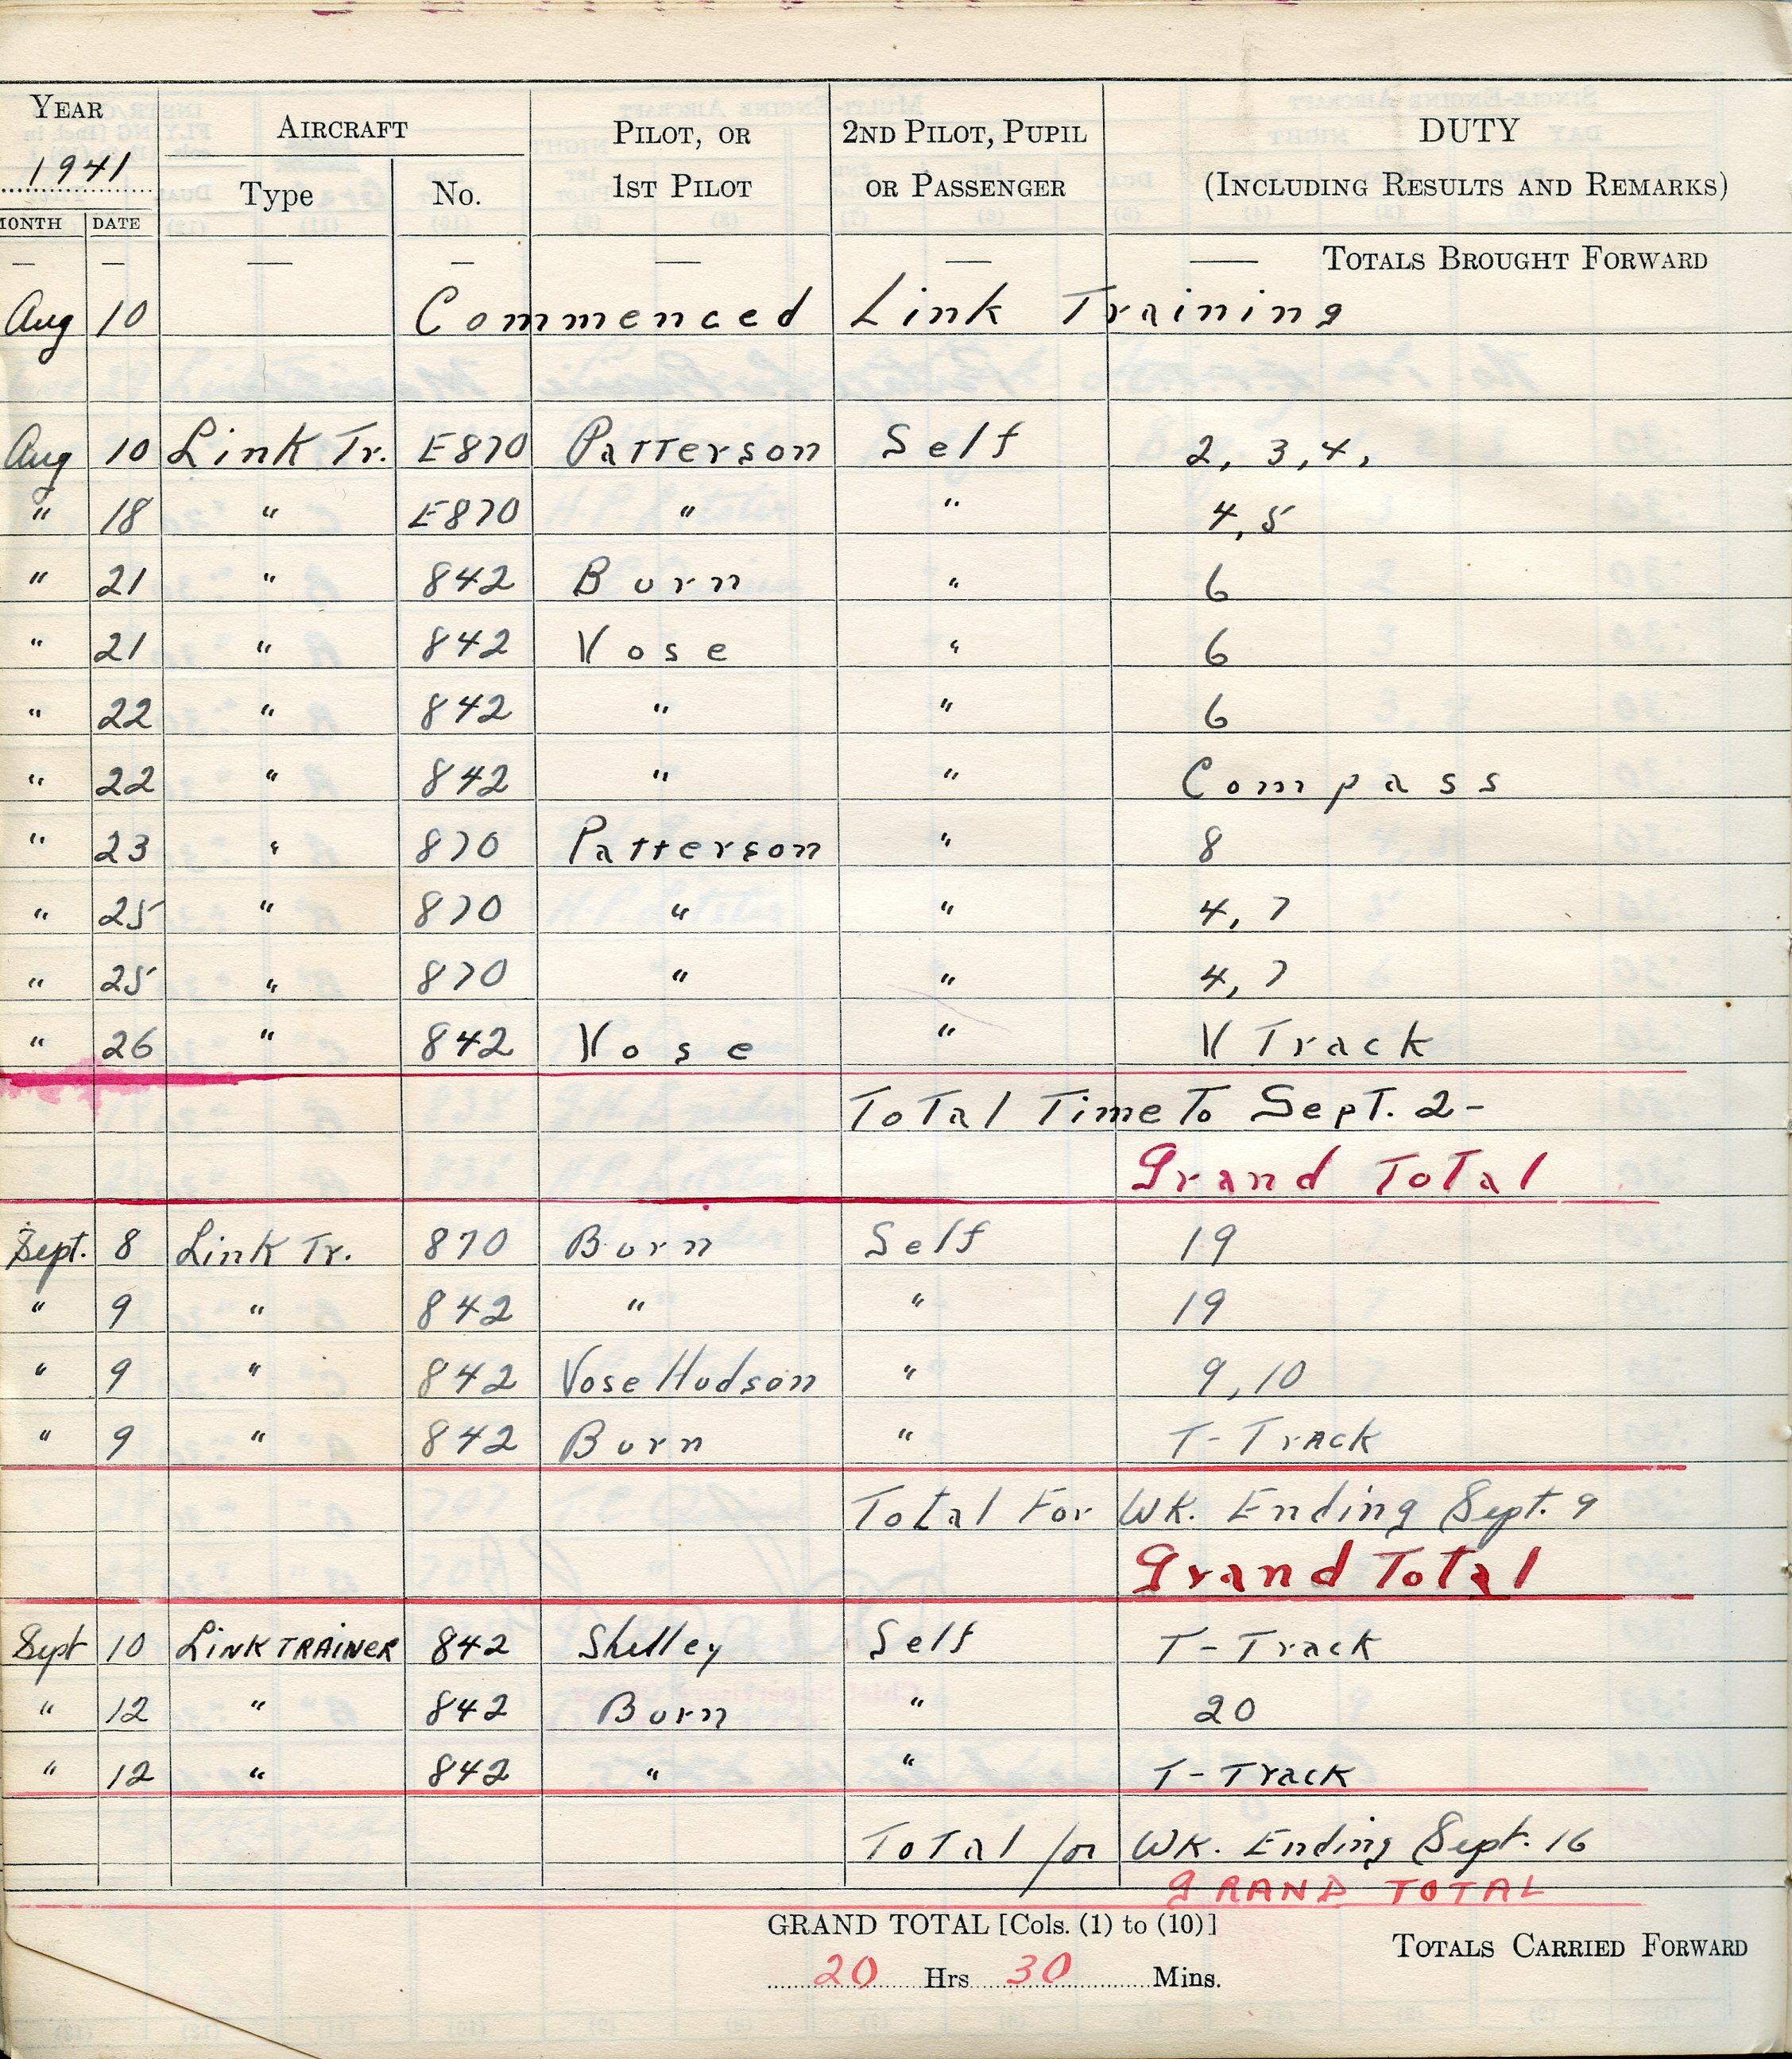 YEAR AIRCRAFT PILOT, OR 2ND PILOT, PUPIL DUTY
1941 Type No. 1ST PILOT OR PASSENGER (INCLUDING RESULTS AND REMARKS)
MONTH DATE
— — — — — — — TOTALS BROUGHT FORWARD
Aug 10 Commenced Link Training
Aug 10 Link Tr. E870 Patterson Self 2, 3, 4,
" 18 " E870 " " 4, 5
" 21 " 842 Burn " 6
" 21 " 842 Vose " 6
" 22 " 842 " " 6
" 22 " 842 " " Compass
" 23 " 870 Patterson " 8
" 25 " 870 " " 4, 7
" 25 " 870 " " 4, 7
" 26 " 842 Vose " V Track
Total Time To Sept. 2-
Grand Total
Sept. 8 Link Tr. 870 Burn Self 19
" 9 " 842 " " 19
" 9 " 842 Vose Hudson " 9, 10
" 9 " 842 Burn " T-Track
Total For Wk. Ending Sept. 9
Grand Total
Sept 10 LINK TRAINER 842 Shelley Self T-Track
" 12 " 842 Burn " 20
" 12 " 842 " " T-Track
Total for Wk. Ending Sept. 16
GRAND TOTAL
GRAND TOTAL [Cols. (1) to (10)]
TOTALS CARRIED FORWARD
20 Hrs 30 Mins.